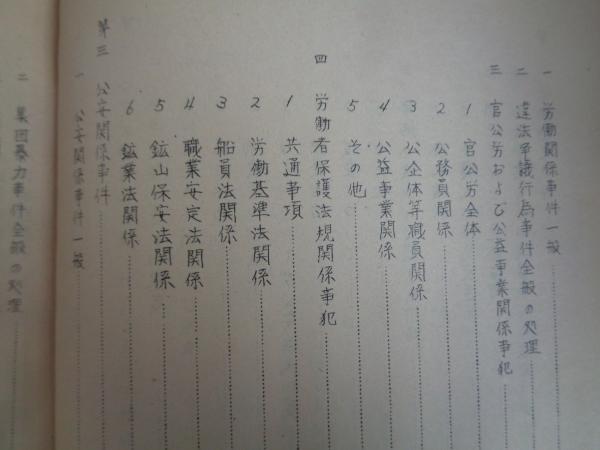 一 労働関係事件一般
二 違法争議行為事件全般の処理
三 官公労および公益事業関係事犯
1 官公労全体
2 公務員関係
3 公企体等職員関係
4 公益事業関係
5 その他
四 労働者保護法規関係事犯
1 共通事項
2 労働基準法関係
3 船員法関係
4 職業安定法関係
5 鉱山保安法関係
6 鉱業法関係
第三 公安関係事件
一 公安関係事件一般
二 集団暴力事件全般の処理